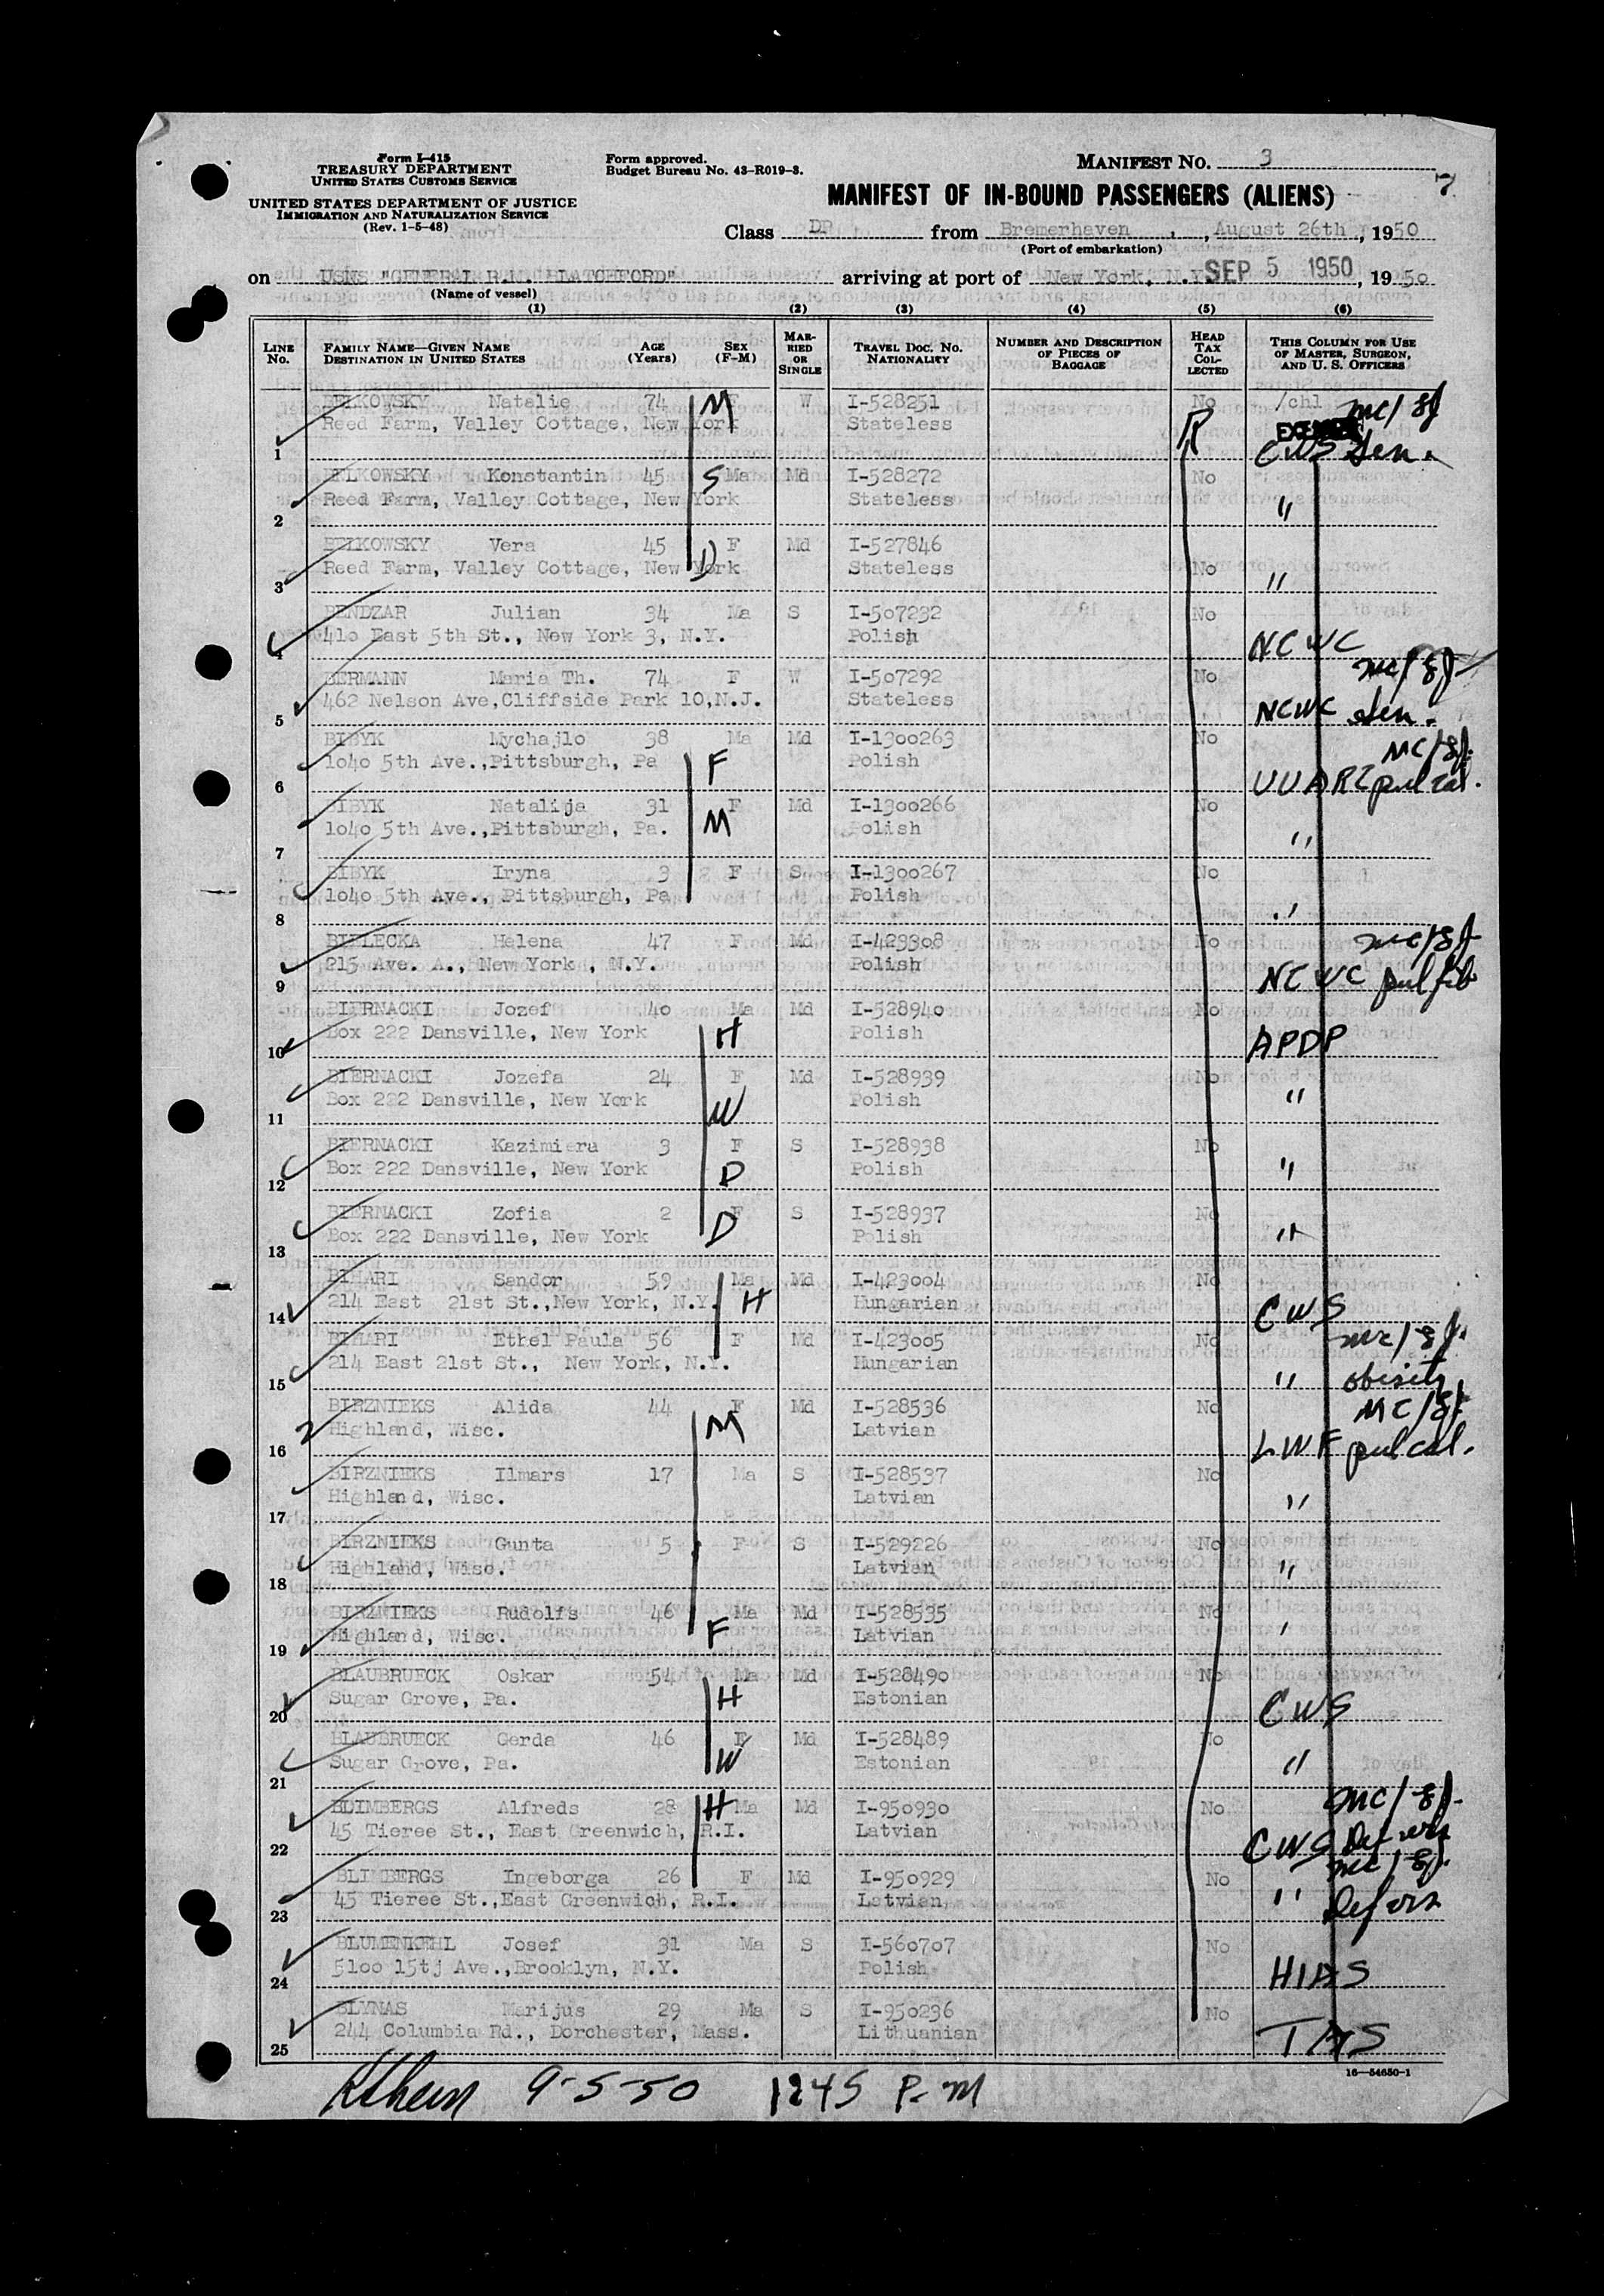 Form I-415
TREASURY DEPARTMENT
UNITED STATES CUSTOMS SERVICE
UNITED STATES DEPARTMENT OF JUSTICE
IMMIGRATION AND NATURALIZATION SERVICE
(Rev. 1-5-48)
Form approved.
Budget Bureau No. 43-R019-3.
MANIFEST NO. 3
MANIFEST OF IN-BOUND PASSENGERS (ALIENS)
7
Class DP from Bremerhaven, August 26th, 1950
(Port of embarkation)
on USNS "GENERAL R.M. BLATCHFORD" arriving at port of New York, N.Y. SEP 5 1950, 1950
(Name of vessel)
(1) (2) (3) (4) (5) (6)
LINE No. FAMILY NAME—GIVEN NAME DESTINATION IN UNITED STATES AGE (Years) SEX (F-M) MARRIED OR SINGLE TRAVEL DOC. NO. NATIONALITY NUMBER AND DESCRIPTION OF PIECES OF BAGGAGE HEAD TAX COLLECTED THIS COLUMN FOR USE OF MASTER, SURGEON, AND U. S. OFFICERS
BELKOWSKY Natalie 74 M F W I-528251 No /chl mc/gf
Reed Farm, Valley Cottage, New York Stateless R
1 CWS Sen.
BELKOWSKY Konstantin 45 S Ma Md I-528272 No
Reed Farm, Valley Cottage, New York Stateless "
2
BELKOWSKY Vera 45 F Md I-527846
Reed Farm, Valley Cottage, New York D Stateless No "
3
BENDZAR Julian 34 Ma S I-507232 No
410 East 5th St., New York 3, N.Y. Polish NCWC
4
BERMANN Maria Th. 74 F W I-507292 No mc/gf
462 Nelson Ave,Cliffside Park 10,N.J. Stateless NCWC Sen.
5
BIBYK Mychajlo 38 Ma Md I-1300263 No MC/gf.
1040 5th Ave.,Pittsburgh, Pa F Polish UUARC pul cal.
6
BIBYK Natalija 31 F Md I-1300266 No
1040 5th Ave.,Pittsburgh, Pa. M Polish "
7
BIBYK Iryna 3 F S I-1300267 No
1040 5th Ave., Pittsburgh, Pa Polish "
8
BIELECKA Helena 47 F Md I-423308 No mc/gf
215 Ave. A., New York , N.Y. Polish NCWC pul fib
9
BIERNACKI Jozef 40 Ma Md I-528940 No
Box 222 Dansville, New York H Polish APDP
10
BIERNACKI Jozefa 24 F Md I-528939 No
Box 222 Dansville, New York W Polish "
11
BIERNACKI Kazimiera 3 F S I-528938 No
Box 222 Dansville, New York D Polish "
12
BIERNACKI Zofia 2 F S I-528937 No
Box 222 Dansville, New York D Polish "
13
BIHARI Sandor 59 Ma Md I-423004 No
214 East 21st St.,New York, N.Y. H Hungarian CWS
14
BIHARI Ethel Paula 56 F Md I-423005 No mc/gf.
214 East 21st St., New York, N.Y. Hungarian " obisity
15
BIRZNIEKS Alida 44 F Md I-528536 No MC/gf.
Highland, Wisc. M Latvian LWF pul cal.
16
BIRZNIEKS Ilmars 17 Ma S I-528537 No
Highland, Wisc. Latvian "
17
BIRZNIEKS Gunta 5 F S I-529226 No
Highland, Wisc. Latvian "
18
BIRZNIEKS Rudolfs 46 Ma Md I-528535 No
Highland, Wisc. F Latvian "
19
BLAUBRUECK Oskar 54 Ma Md I-528490 No
Sugar Grove, Pa. H Estonian CWS
20
BLAUBRUECK Gerda 46 F Md I-528489 No
Sugar Grove, Pa. W Estonian "
21
BLIMBERGS Alfreds 28 H Ma Md I-950930 No mc/gf.
45 Tieree St., East Greenwich, R.I. Latvian CWS
22
BLIMBERGS Ingeborga 26 F Md I-950929 No mc/gf.
45 Tieree St.,East Greenwich, R.I. Latvian "
23
BLUMENKEHL Josef 31 Ma S I-560707 No
5100 15tj Ave.,Brooklyn, N.Y. Polish HIAS
24
BLYNAS Marijus 29 Ma S I-950236 No
244 Columbia Rd., Dorchester, Mass. Lithuanian TAS
25
16—54650-1
9-5-50 1245 P.M